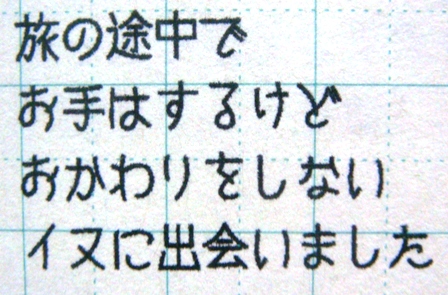 旅の途中で
お手はするけど
おかわりをしない
イヌに出会いました